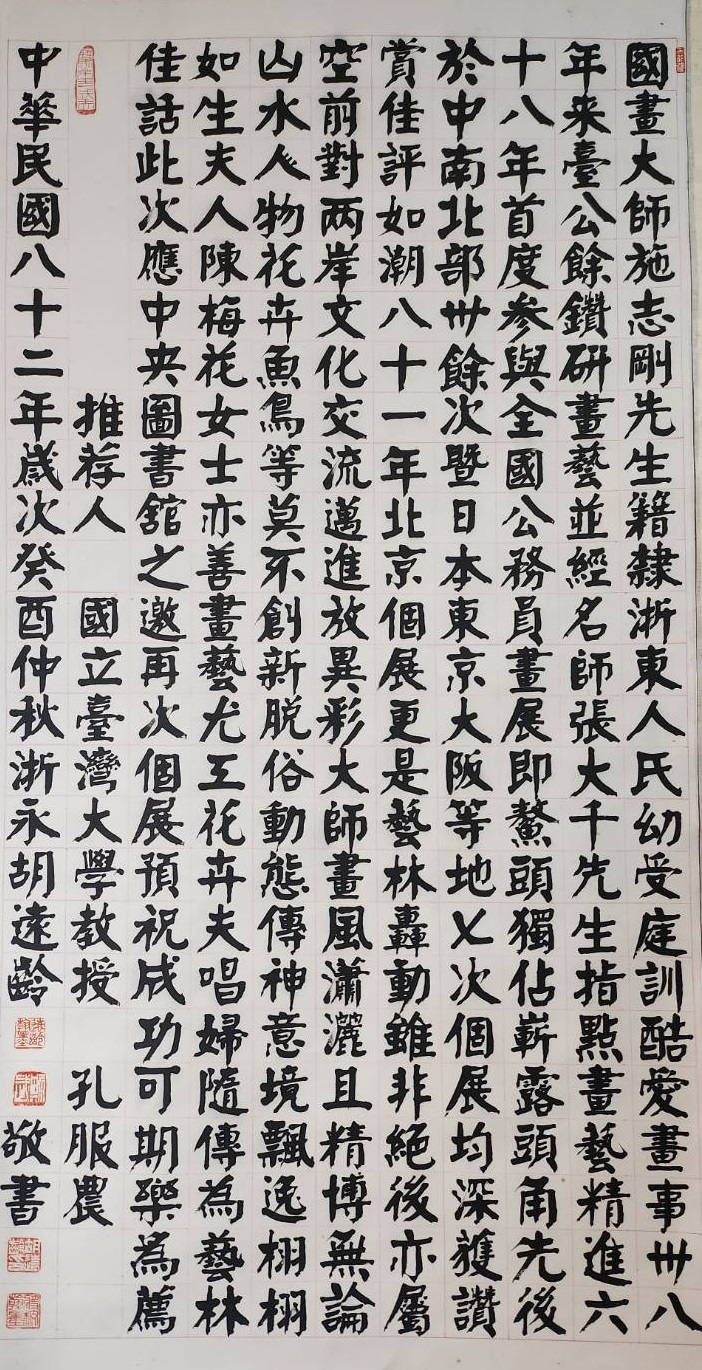 國畫大師施志剛先生籍隸浙東人氏幼受庭訓酷愛畫事卅八
年来臺公餘鑽研畫藝並經名師張大千先生指點畫藝精進六
十八年首度參與全國公務員畫展即鰲頭獨佔嶄露頭角先後
於中南北部卅餘次暨日本東京大阪等地乂次個展均深獲讚
賞佳評如潮八十一年北京個展更是藝林轟動雖非絕後亦屬
空前對两岸文化交流邁進放異彩大師畫風瀟灑且精博無論
山水人物花卉魚鳥等莫不創新脱俗動態傳神意境飄逸栩栩
如生夫人陳梅花女士亦善畫藝尤工花卉夫唱婦隨傳為藝林
佳話此次應中央圖書舘之邀再次個展預祝成功可期樂為薦
推荐人 國立臺灣大學教授 孔服農
中華民國八十二年歲次癸酉仲秋浙永胡遠齡 敬書